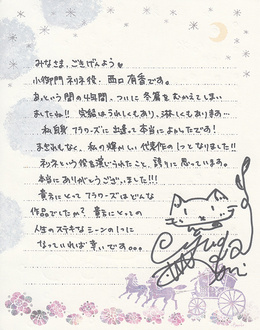 みなさま、ごきげんよう
小御門 ネリネ役・西口有香です。
あっという間の4年間、ついに冬篇をむかえてしまい
ましたね!! 完結はうれしくもあり、淋しくもあります…
私自身フラワーズに出逢って本当によかったです!
まぎれもなく、私の輝かしい代表作の1つとなりました!!
ネリネという役を演じられたこと、誇りに思っています。
本当にありがとうございました!!!
貴方にとってフラワーズはどんな
作品でしたか? 貴方にとっての
人生のステキなシーンの1つに
なっていれば幸いです。。。